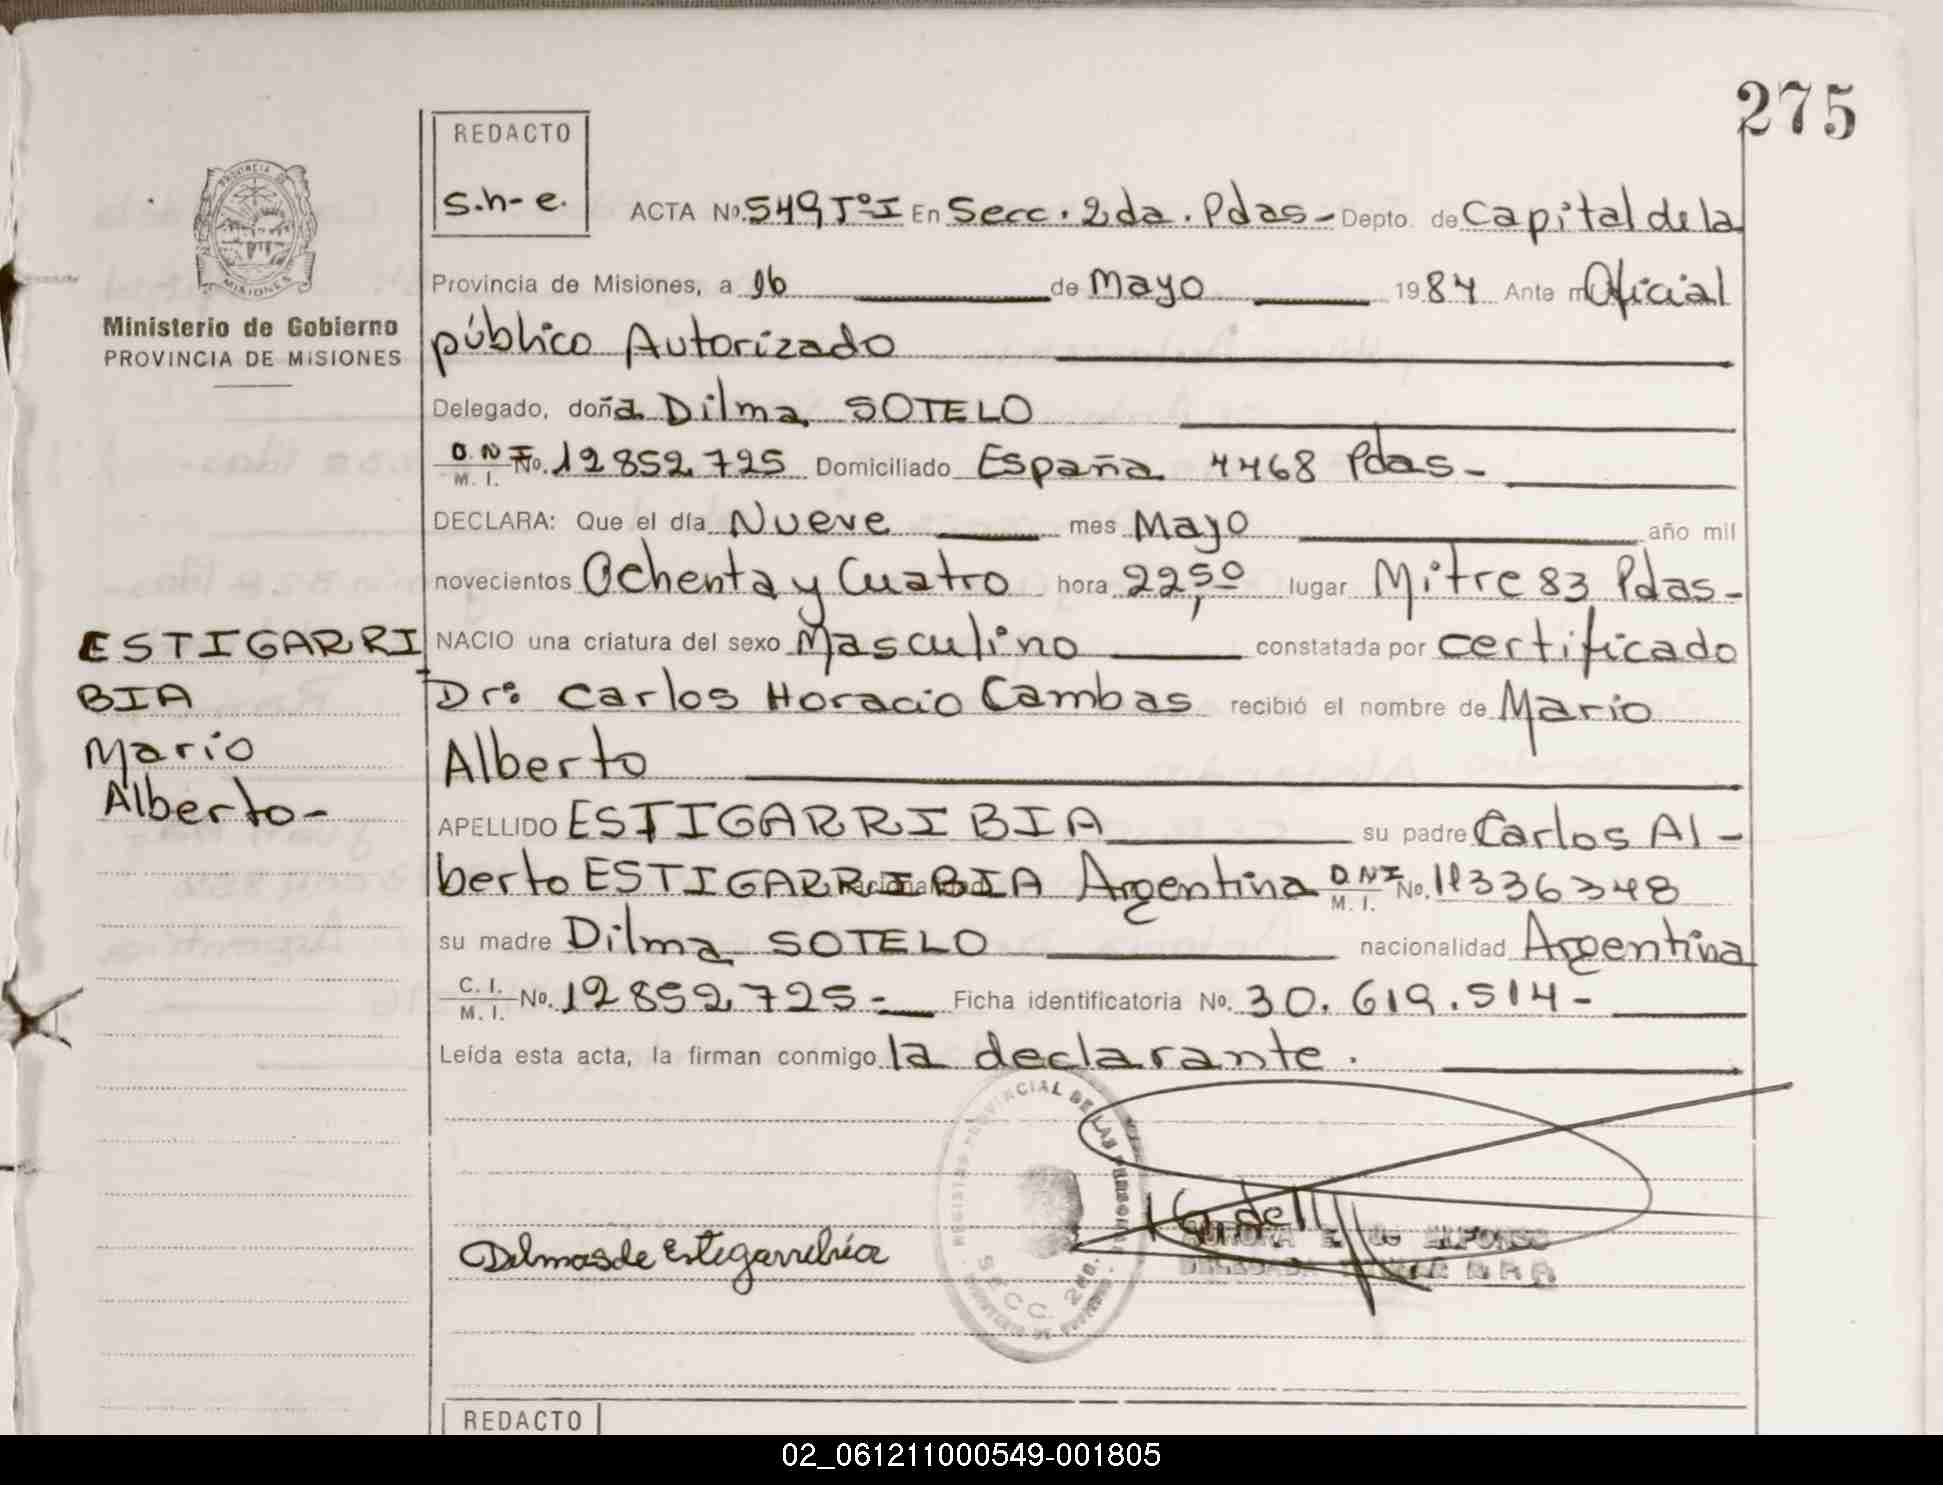 275
REDACTO
s.h-e.
PROVINCIA DE
MISIONES
Ministerio de Gobierno
PROVINCIA DE MISIONES
ACTA No. 549 Tº I En Secc. 2da. Pdas- Depto. de Capital de la
Provincia de Misiones, a 16 de Mayo 1984 Ante mi Oficial
público Autorizado
Delegado, doña Dilma SOTELO
D.N.I M. I. No. 12852.725 Domiciliado España 4468 Pdas-
DECLARA: Que el día Nueve mes Mayo año mil
novecientos Ochenta y Cuatro hora 22,50 lugar Mitre 83 Pdas-
NACIO una criatura del sexo Masculino constatada por certificado
Dr: Carlos Horacio Cambas recibió el nombre de Mario
Alberto
APELLIDO ESTIGARRIBIA su padre Carlos Al-
berto ESTIGARRIBIA Argentina D.N.I M. I. No. 11336348
su madre Dilma SOTELO nacionalidad Argentina
C. I. M. I. No. 12852.725- Ficha identificatoria No. 30.619.514-
Leída esta acta, la firman conmigo la declarante.
ESTIGARRI
BIA
Mario
Alberto-
REGISTRO PROVINCIAL DE LAS PERSONAS
SECC. 2da.
Dilma S de Estigarribia
AURORA E. de
REDACTO
02_061211000549-001805